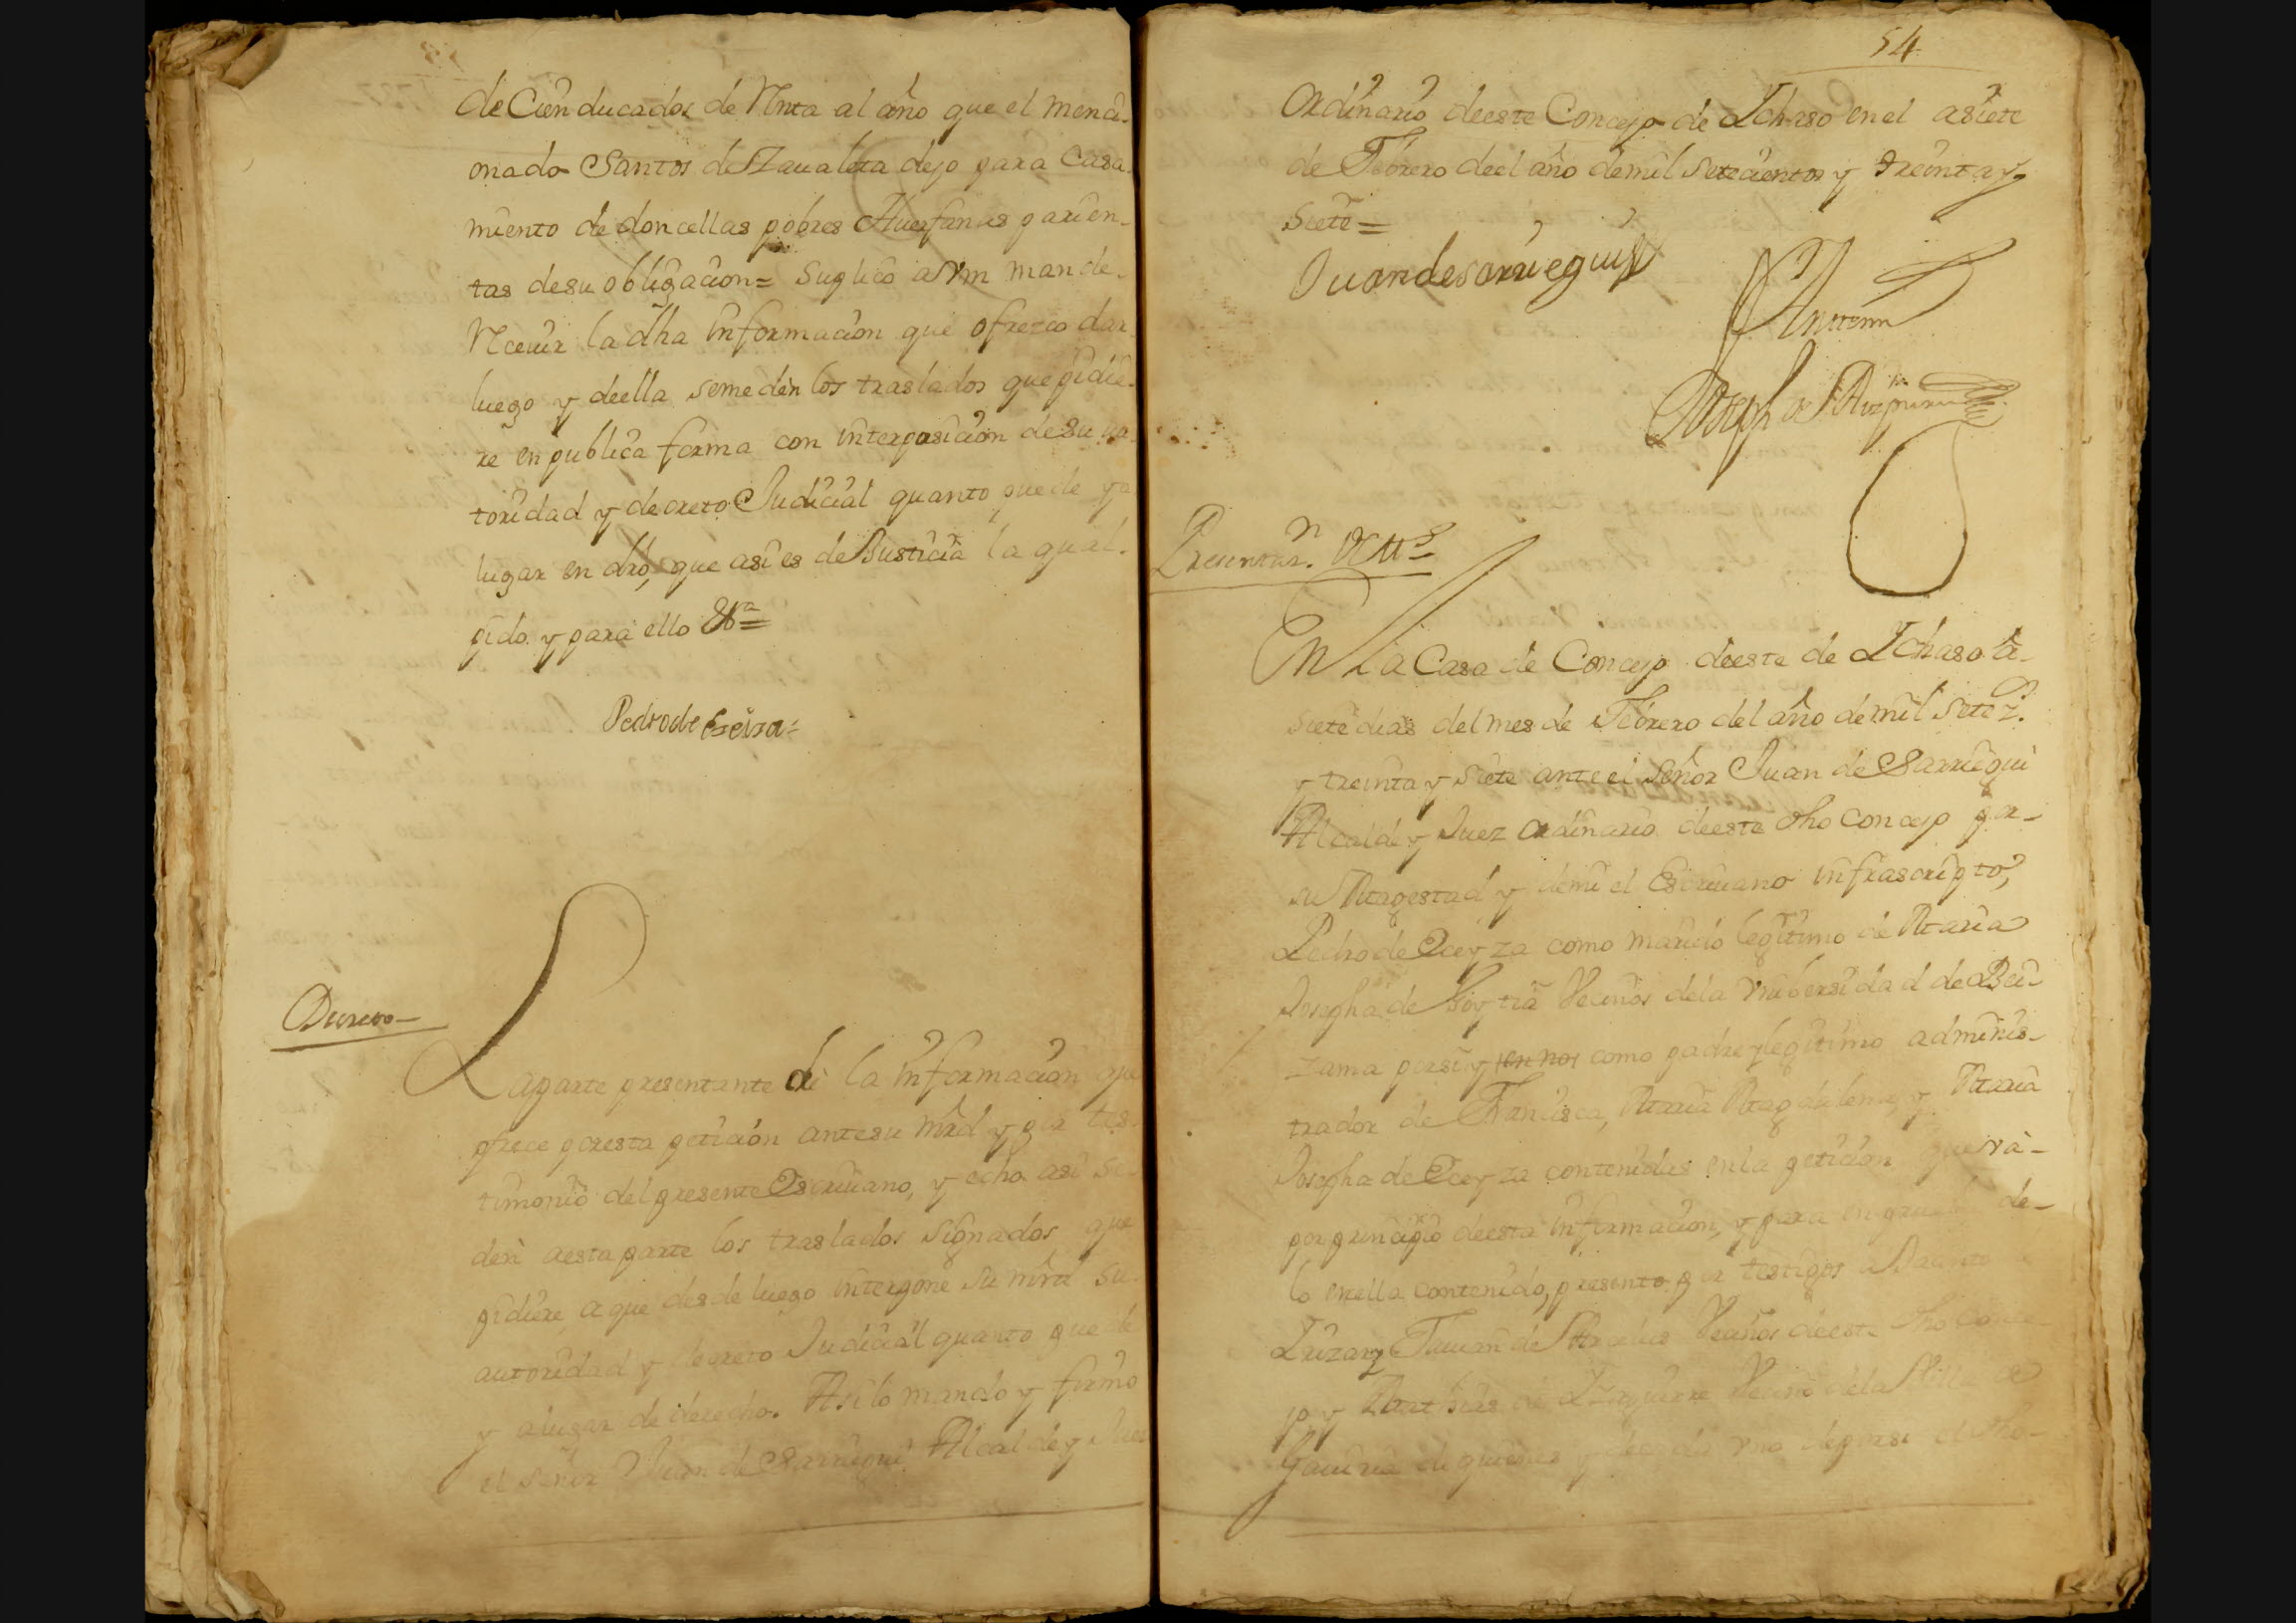 de Cien ducados de Renta al año que el menci-
onado Santos de Zaualeta dejo para Casa-
miento de doncellas pobres Huerfanas parien-
tas desu obligacion= Suplico a Vm mande-
Receuir la dha informacion que ofrezco dar
luego y deella semeden los traslados que pidie-
re en publica forma con interposicion de su au-
toridad y decreto Judicial quanto puede ya
lugar en dro, que asi es de Justicia la qual.
pido y para ello &ra=
Pedro de Eceiza
Decreto-
La parte presentante dè la informacion que
ofrece poresta peticion antesu mrd y por tes-
timonio del presente Escriuano, y echo asi se
den aesta parte los traslados signados que
pidiere, a que desde luego interpone su mrd su
autoridad y decreto Judicial quanto puede
y alugar de derecho. Asi lo mando y firmo
el señor Juan de Sarriegui Alcalde y Juez
54
Ordinario deeste Concejo de Ychaso en el asiete
de Febrero deel año demil setecientos y treinta y
siete=
Juan de Sarriegui
Antemi
Joseph de Aizpuru
Presentazn. de ttos
En la Casa de Concejo deeste de Ychaso a-
siete dias del mes de Febrero del año demil setez.
y treinta y siete ante el Señor Juan de Sarriegui
Alcalde y Juez ordinario deeste dho Concejo por-
su Magestad y demi el Escriuano infrascripto,
Pedro de Eceyza como marido legitimo de Maria
Josepha de Goytia Vecinos dela Vniversidad de Bei-
zama porsi y en nos como padre y legitimo adminis-
trador de Francisca, Maria Magdalena, y Maria
Josepha de Eceyza contenidas enla peticion que và-
por principio deesta informacion, y para en prueba de-
lo enella contenido, presento por testigos a
Juan de Arcelus Vecinos deeste dho Conce-
jo y de Yzaguirre Vecino dela Villa de
Gauiria de quienes y de cada vno deporsi el dho-